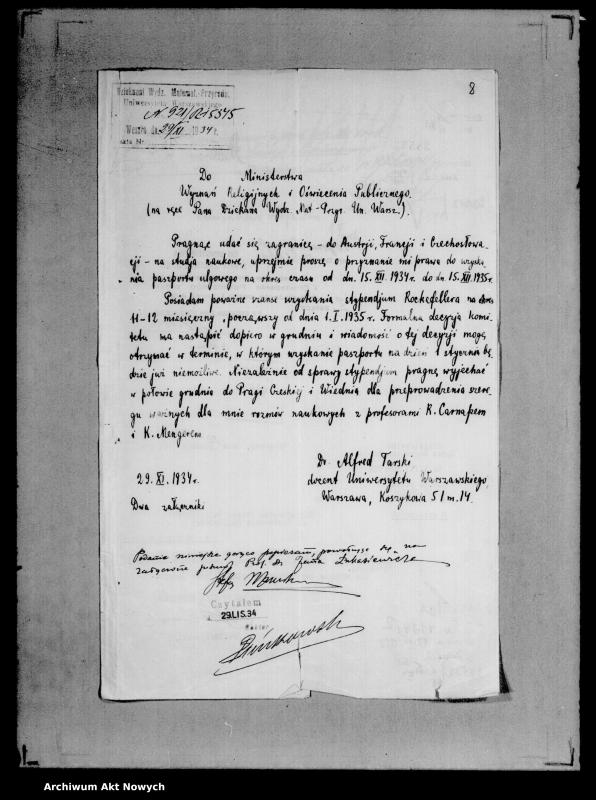 8
Dziekanat Wydz. Matemat.-Przyrodn.
Uniwersytetu Warszawskiego
N. 921/
Warsz. dn. 29/XI 1934 r.
Akta Nr
Do Ministerstwa
Wyznań Religijnych i Oświecenia Publicznego.
(na ręce Pana Dziekana Wydz. Mat-Przyr. Un. Warsz.).
Pragnąc udać się zagranicę - do Austrji, Francji i Czechosłowa-
cji - na studja naukowe, uprzejmie proszę o przyznanie mi prawa do uzyska-
nia paszportu ulgowego na okres czasu od dn. 15. XII 1934 r. do dn. 15. XII. 1935 r.
Posiadam poważne szanse uzyskania stypendjum Rockefellera na okres
11-12 miesięczny, począwszy od dnia 1. I. 1935 r. Formalna decyzja komi-
tetu ma nastąpić dopiero w grudniu i wiadomość o tej decyzji mogę
otrzymać w terminie, w którym uzyskanie paszportu na dzień 1 stycznia bę-
dzie już niemożliwe. Niezależnie od sprawy stypendjum pragnę wyjechać
w połowie grudnia do Pragi Czeskiej i Wiednia dla przeprowadzenia szere-
gu ważnych dla mnie rozmów naukowych z profesorami R. Carnapem
i K. Mengerem
Dr. Alfred Tarski
docent Uniwersytetu Warszawskiego,
Warszawa, Koszykowa 51 m. 14.
29. XI. 1934 r.
Dwa załączniki
Podanie niniejsze gorąco popieram, powołując się na
załączone pismo Prof. Dr Jana Łukasiewicza
Czytałem
29.LIS.34
Rektor
Archiwum Akt Nowych